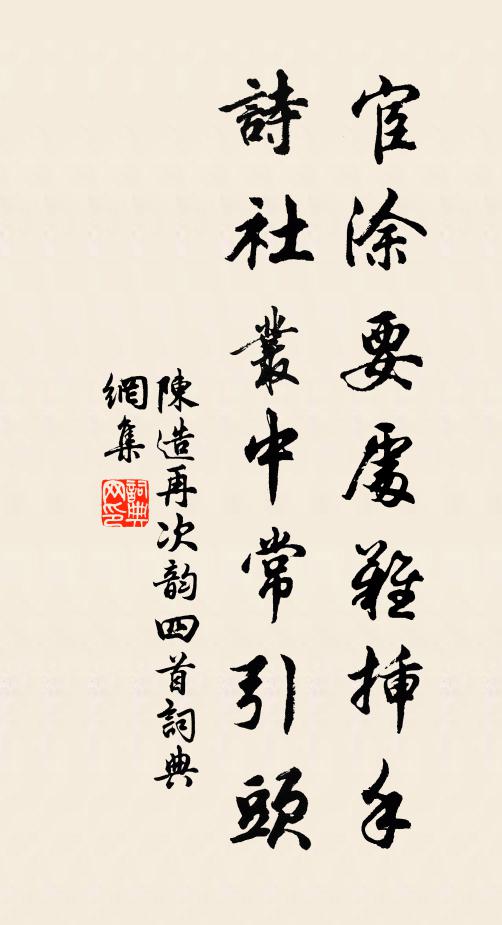 宦涂要處難插手
詩社叢中常引頭
陳造再次韵四首詞典
網集
詞典
网印